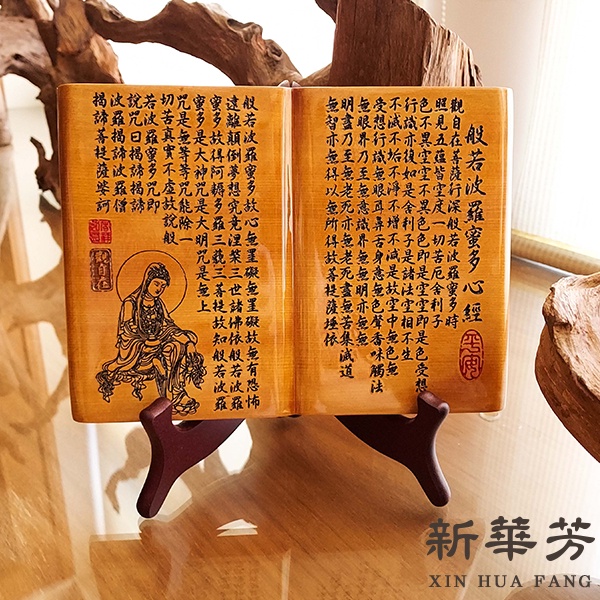 般若波羅蜜多心經
平安
觀自在菩薩行深般若波羅蜜多時
照見五蘊皆空度一切苦厄舍利子
色不異空空不異色色即是空空即是色受想
行識亦復如是舍利子是諸法空相不生
不滅不垢不淨不增不減是故空中無色無
受想行識無眼耳鼻舌身意無色聲香味觸法
無眼界乃至無意識界無無明亦無無
明盡乃至無老死亦無老死盡無苦集滅道
無智亦無得以無所得故菩提薩埵依
般若波羅蜜多故心無罣礙無罣礙故無有恐怖
遠離顛倒夢想究竟涅槃三世諸佛依般若波羅
蜜多故得阿耨多羅三藐三菩提故知般若波羅
蜜多是大神咒是大明咒是無上
咒是無等等咒能除一
切苦真實不虛故說般
若波羅蜜多咒即
說咒曰揭諦揭諦
波羅揭諦波羅僧
揭諦菩提薩婆訶
觀自在
新華芳
XIN HUA FANG